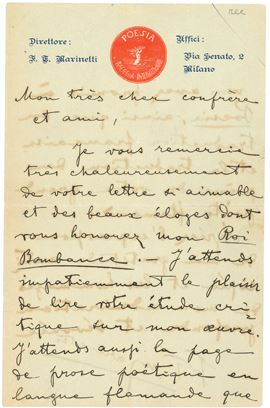 Direttore:
F. T. Marinetti
POESIA
RASSEGNA INTERNAZIONALE
Uffici:
Via Senato, 2
Milano
Mon très cher confrère
et ami,
Je vous remercie
très chaleureusement
de votre lettre si aimable
et des beaux éloges dont
vous honorez mon Roi
Bombance. — J'attends
impatiemment le plaisir
de lire votre étude cri-
tique sur mon œuvre.
J'attends aussi la page
de prose poétique en
langue flamande que